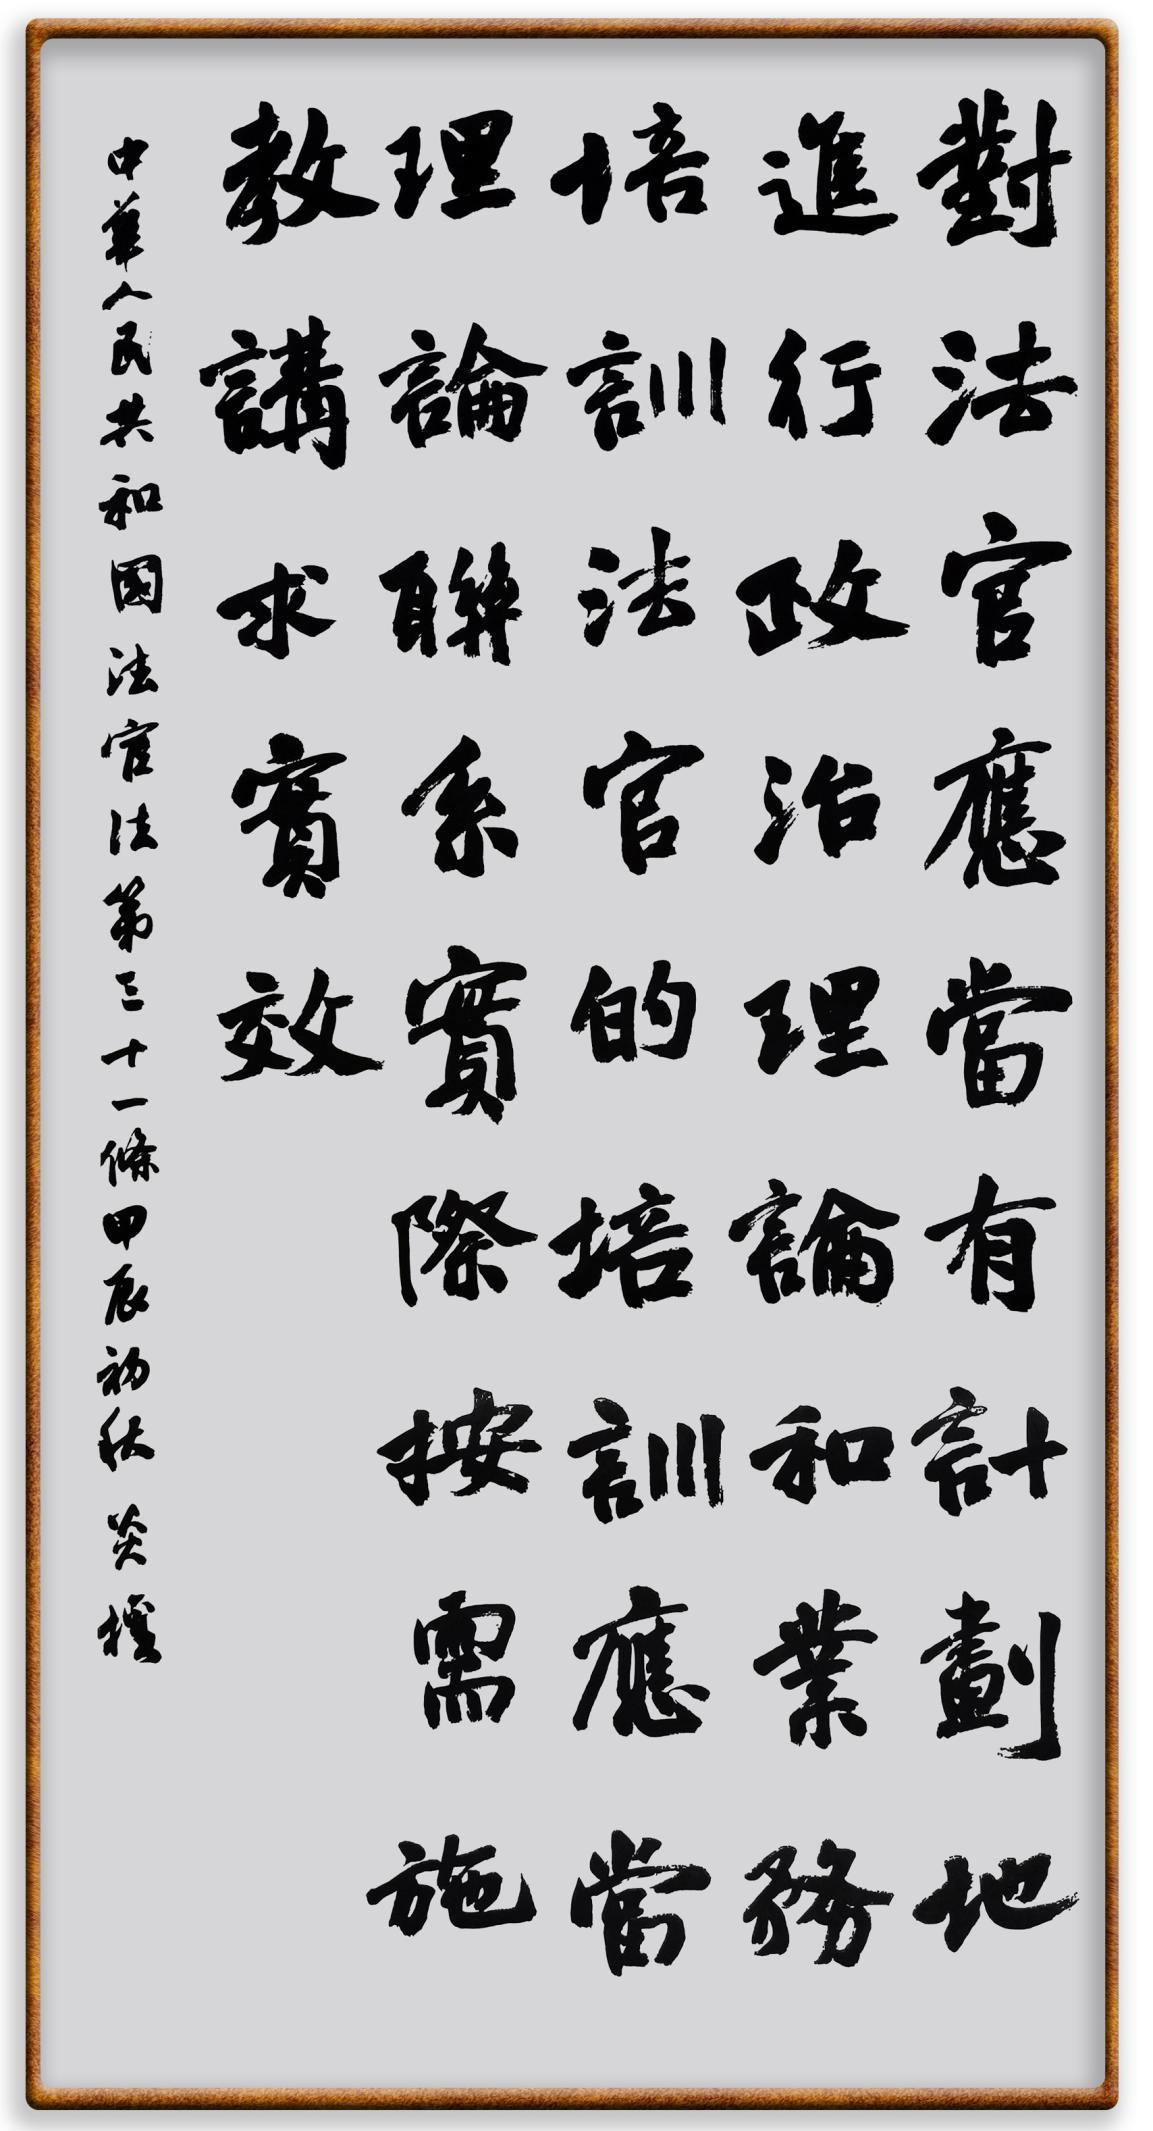 對法官應當有計劃地
進行政治理論和業務
培訓法官的培訓應當
理論聯系實際按需施
教講求實效
中華人民共和國法官法第三十一條甲辰初秋 炎